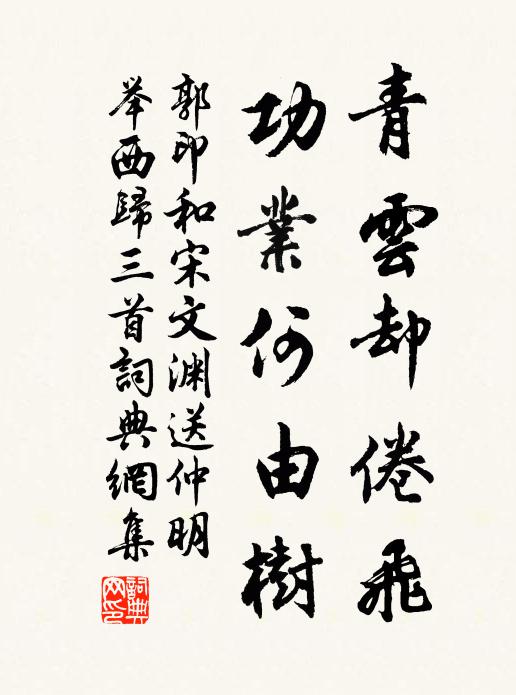 青雲却倦飛
功業何由樹
郭印和宋文渊送仲明
举西歸三首詞典網集
詞典网印